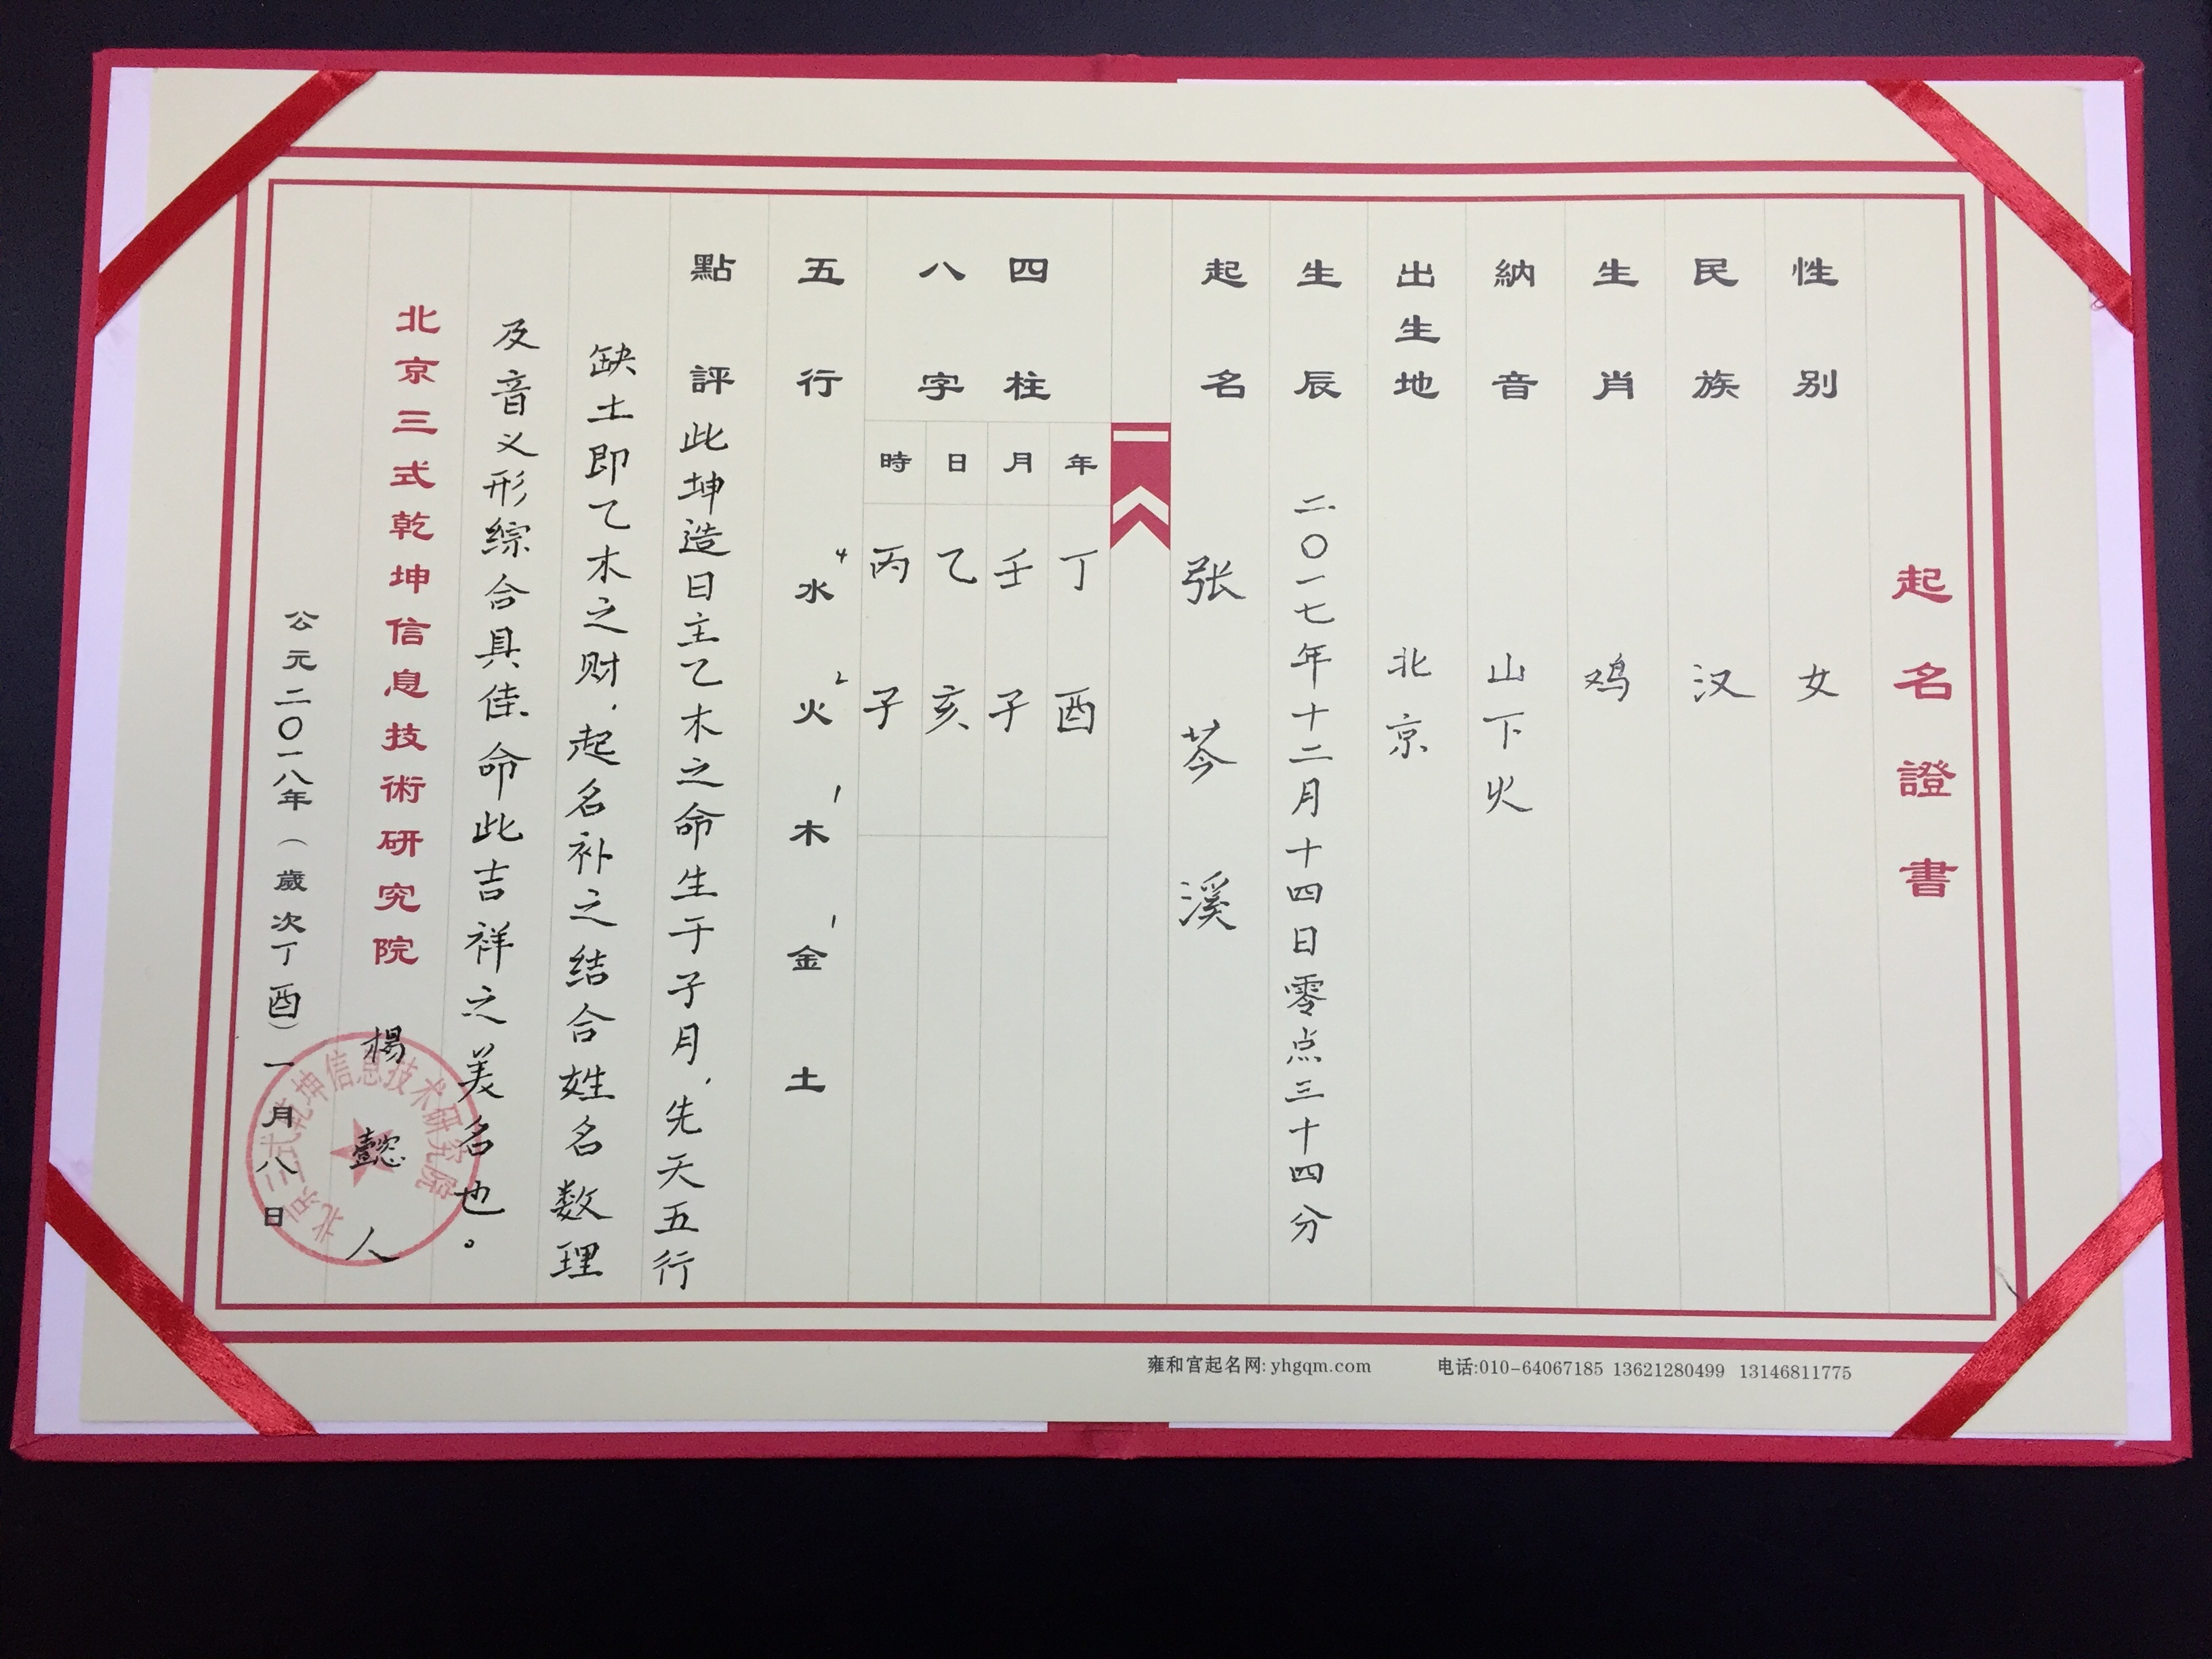 起名證書
性别 女
民族 汉
生肖 鸡
納音 山下火
出生地 北京
生辰 二〇一七年十二月十四日零点三十四分
起名 张芩溪
四柱
八字
年 丁酉
月 壬子
日 乙亥
時 丙子
五行 水4 火2 木1 金1 土
點評 此坤造日主乙木之命生于子月,先天五行
缺土即乙木之财,起名补之结合姓名数理
及音义形综合具佳命此吉祥之美名也。
北京三式乾坤信息技術研究院 楊懿人
公元二〇一八年(歲次丁酉)一月八日
北京三式乾坤信息技术研究院
雍和官起名网: yhgqm.com 电话:010-64067185 13621280499 13146811775